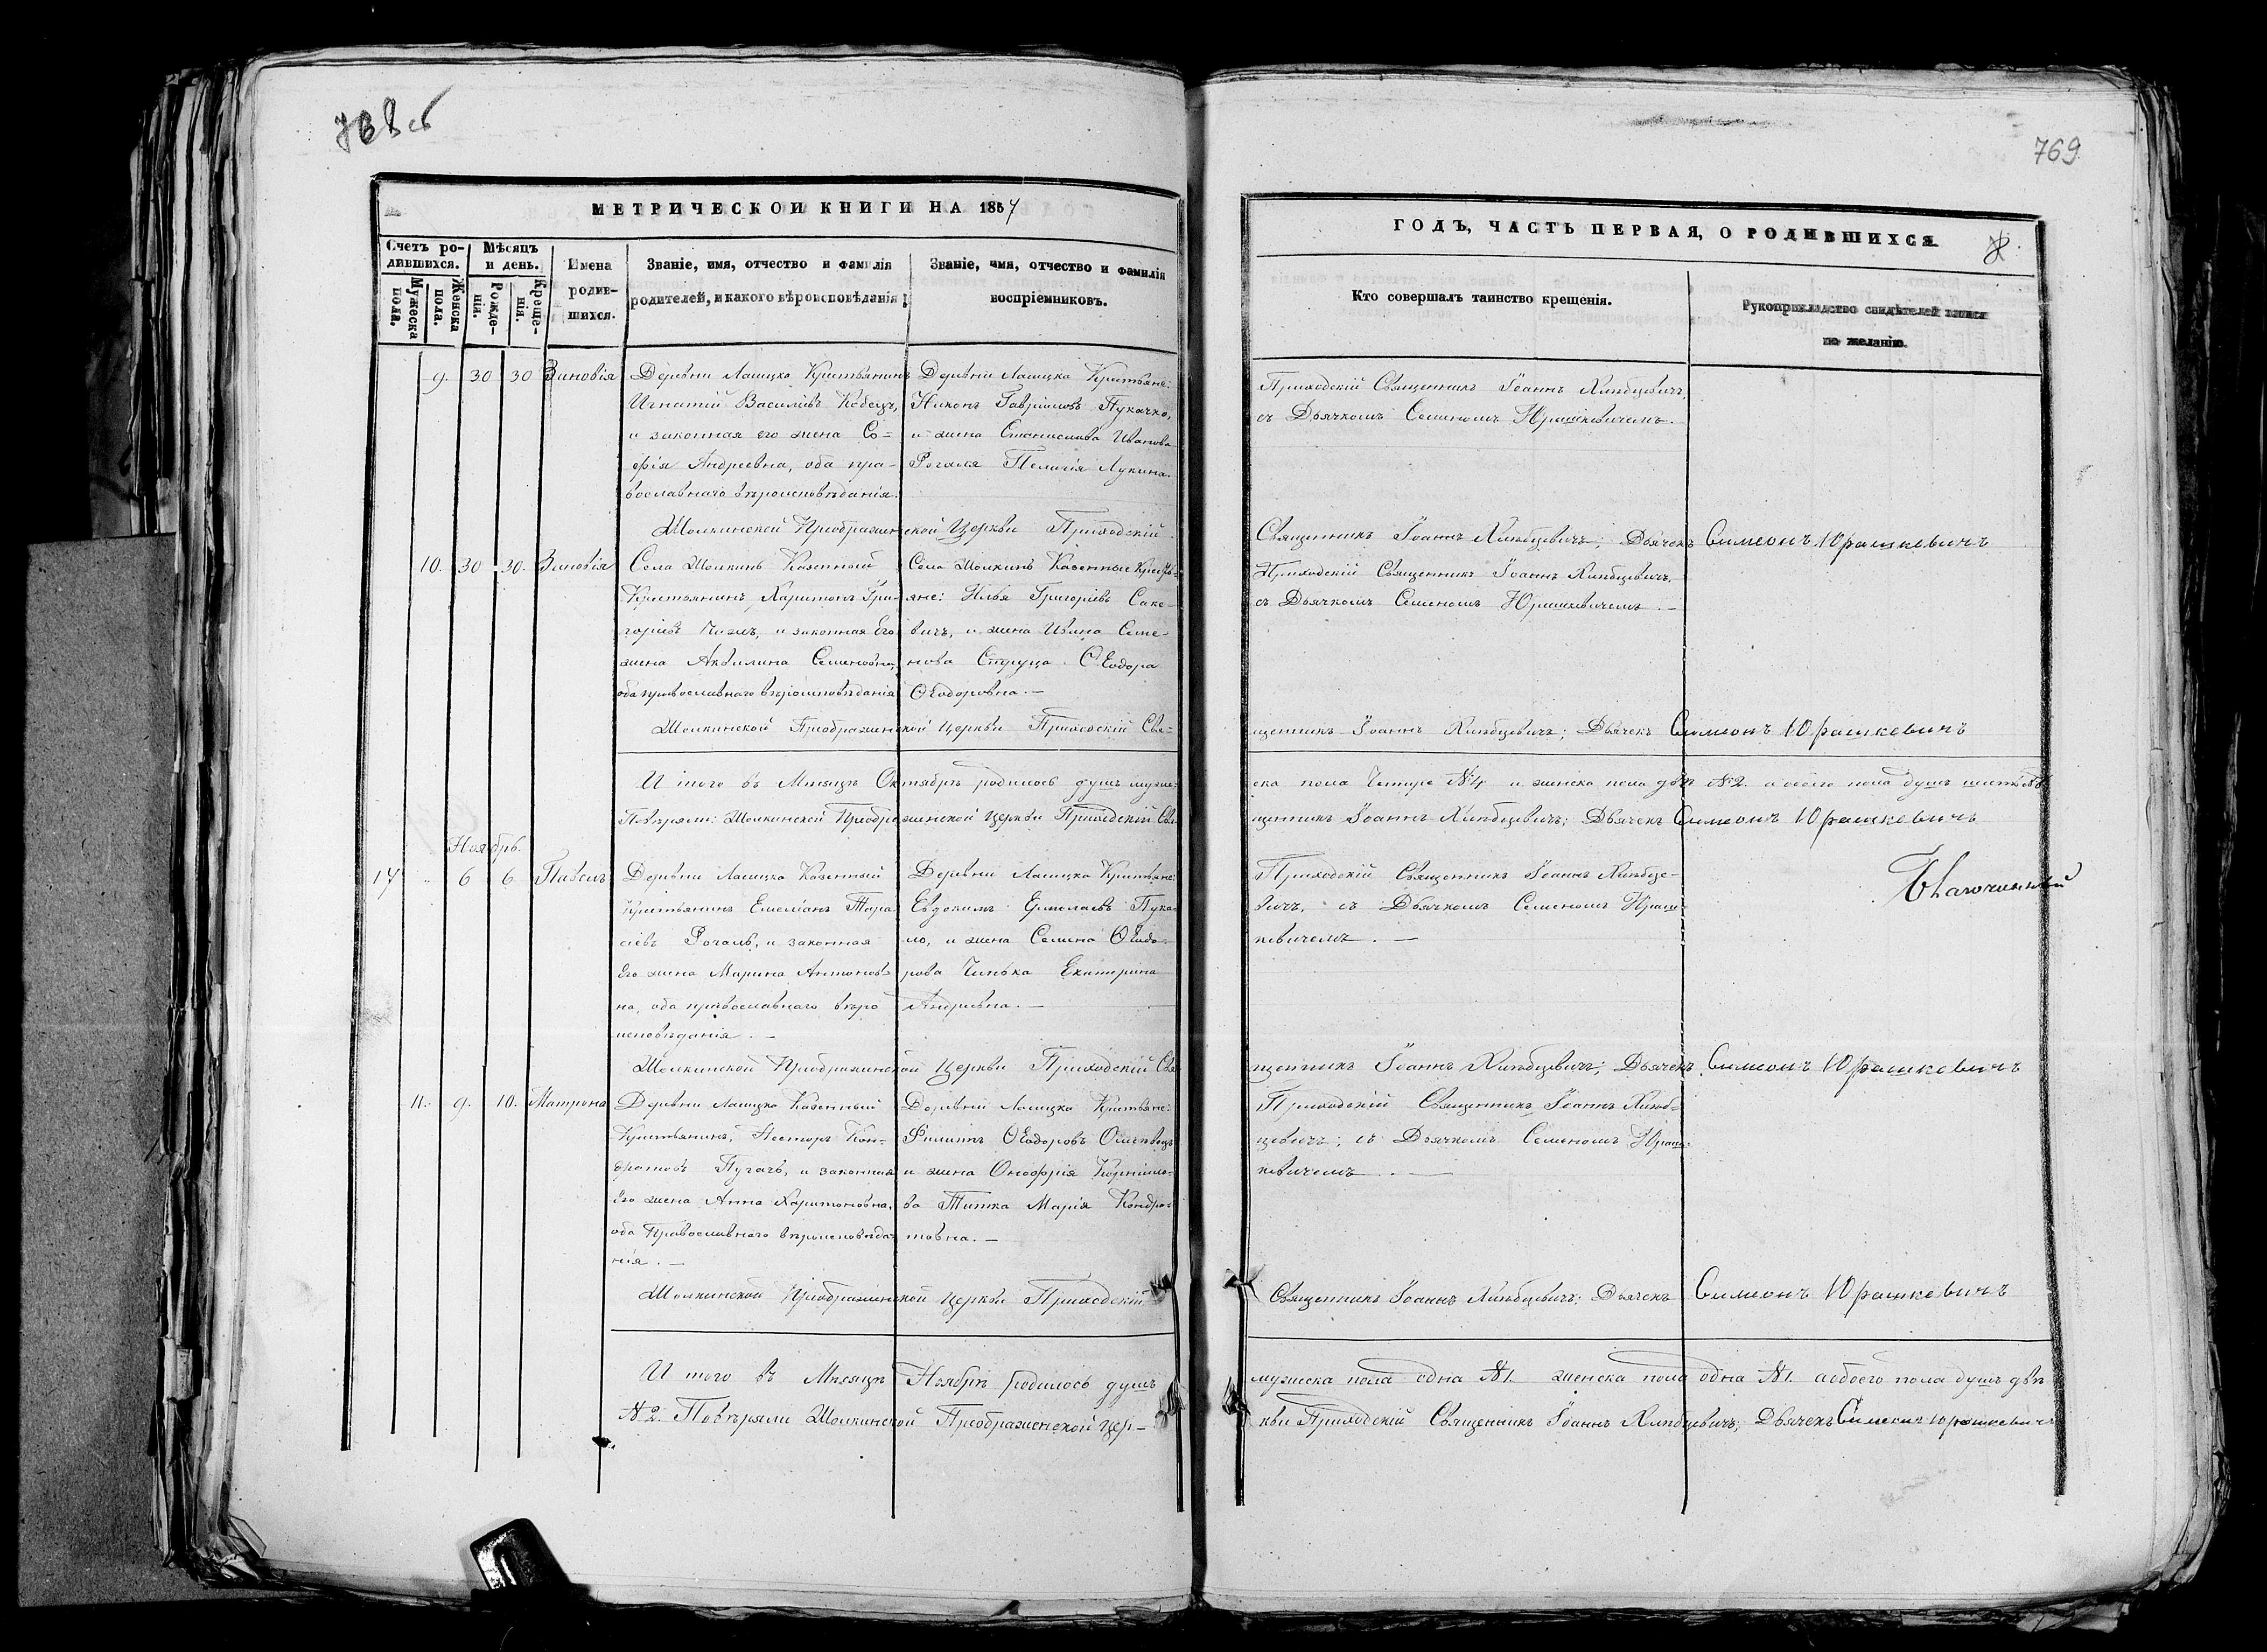 768 об
769
МЕТРИЧЕСКОЙ КНИГИ НА 1857
Счетъ ро-
дившихся.
Мужеска пола.
Женска пола.
Мѣсяцъ
и день.
Рожде-
нія.
Креще-
нія.
Имена
родив-
шихся.
Званіе, имя, отчество и фамилія
родителей, и какого вѣроисповѣданія
Званіе, имя, отчество и фамилія
воспріемниковъ.
9. 30 30 Зиновія
Деревни Ласицка Крестьянинъ
Игнатій Васильевъ Кобецъ,
и законная его жена Со-
фія Андреевна, оба пра-
вославнаго вѣроисповѣданія.
Деревни Ласицка Крестьяне:
Никонъ Гавриловъ Пукачко,
и жена Станислава Иванова
Рогаля Пелагія Лукина.
Шоломинской Преображенской Церкви Приходскій
10. 30 30. Зиновія
Села Казенный
Крестьянинъ Харитонъ Гри-
горіевъ и законная Его
жена Акилина Семеновна,
оба православнаго вѣроисповѣданія
Села Казенные Крестья-
яне: Илья Григоріевъ Саке-
вичъ, и жена Ивана Семе-
нова Струца Ѳеодора
Ѳеодоровна. —
Преображенской Церкви Приходскій Свя-
И того въ Мѣсяцѣ Октябрѣ родилось душъ муже-
Повѣряли: Преображенской Церкви Приходскій Свя-
Ноябрь.
17 " 6 6 Павелъ
Деревни Ласицка Казенный
Крестьянинъ Емеліанъ Тара-
сіевъ Рогаль, и законная
Его жена Марина Антонов-
на, оба православнаго вѣро
исповѣданія. —
Деревни Ласицка Крестьяне:
Евдокимъ Ермолаевъ Пука-
ло, и жена Семена Ѳеодо-
рова Чинька Екатерина
Андреевна. —
Преображенской Церкви Приходскій Свя
11. 9. 10. Матрона
Деревни Ласицка Казенный
Крестьянинъ, Несторъ Кон-
дратовъ Пугачъ, и законная
Его жена Анна Харитоновна,
оба Православнаго вѣроисповѣда-
нія. —
Деревни Ласицка Крестьяне:
Филиппъ Ѳеодоровъ
и жена Онофрія Корнило-
ва Типка Марія Кондра-
товна. —
Преображенской Церкви Приходскій
И того въ Мѣсяцѣ Ноябрѣ родилось душъ
№2. Повѣряли Преображенской Цер-
ГОДЪ, ЧАСТЬ ПЕРВАЯ, О РОДИВШИХСЯ.
Кто совершалъ таинство крещенія.
Рукоприкладство свидѣтелей записи
по желанію.
Приходскій Священникъ Іоаннъ Хлѣбцевичъ,
съ Дьячкомъ Семеномъ Юрашкевичемъ.
Священникъ Іоаннъ Хлѣбцевичъ; Дьячекъ Симеонъ Юрашкевичъ
Приходскій Священникъ Іоаннъ Хлѣбцевичъ,
съ Дьячкомъ Семеномъ Юрашкевичемъ. —
щенникъ Іоаннъ Хлѣбцевичъ; Дьячекъ Симеонъ Юрашкевичъ
ска пола Четыре №4 и женска пола двѣ №2. а обоего пола душъ шесть №6
щенникъ Іоаннъ Хлѣбцевичъ; Дьячекъ Симеонъ Юрашкевичъ
Благочинный
Приходскій Священникъ Іоаннъ Хлѣбце-
вичъ, съ Дьячкомъ Семеномъ Юраш-
кевичемъ. —
щенникъ Іоаннъ Хлѣбцевичъ; Дьячекъ Симеонъ Юрашкевичъ
Приходскій Священникъ Іоаннъ Хлѣб-
цевичъ, съ Дьячкомъ Семеномъ Юраш-
кевичемъ. —
Священникъ Іоаннъ Хлѣбцевичъ; Дьячекъ Симеонъ Юрашкевичъ
мужеска пола одна №1. женска пола одна №1. а обоего пола душъ двѣ
кви Приходскій Священникъ Іоаннъ Хлѣбцевичъ; Дьячекъ Симеонъ Юрашкевичъ